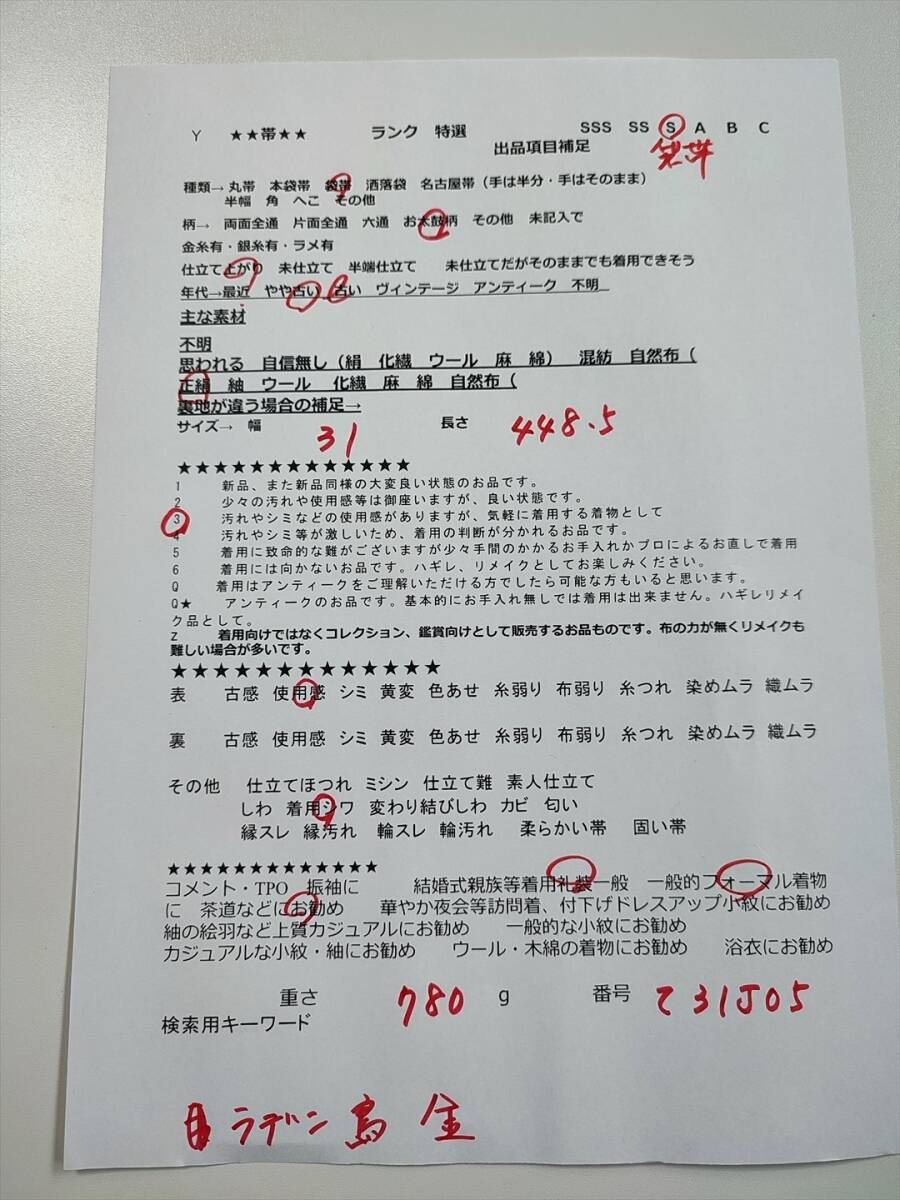 Y ★★帯★★ ランク 特選 SSS SS S A B C
出品項目補足 袋帯
種類→丸帯 本袋帯 袋帯 洒落袋 名古屋帯（手は半分・手はそのまま）
半幅 角 へこ その他
柄→ 両面全通 片面全通 六通 お太鼓柄 その他 未記入で
金糸有・銀糸有・ラメ有
仕立て上がり 未仕立て 半端仕立て 未仕立てだがそのままでも着用できそう
年代→最近 やや古い 古い ヴィンテージ アンティーク 不明
主な素材
不明
思われる 自信無し（絹 化繊 ウール 麻 綿） 混紡 自然布（
正絹 紬 ウール 化繊 麻 綿 自然布（
裏地が違う場合の補足→
サイズ→ 幅 31 長さ 448.5
★★★★★★★★★★★★★
1 新品、また新品同様の大変良い状態のお品です。
2 少々の汚れや使用感等は御座いますが、良い状態です。
3 汚れやシミなどの使用感がありますが、気軽に着用する着物として
4 汚れやシミ等が激しいため、着用の判断が分かれるお品です。
5 着用に致命的な難がございますが少々手間のかかるお手入れかプロによるお直しで着用
6 着用には向かないお品です。ハギレ、リメイクとしてお楽しみください。
Q 着用はアンティークをご理解いただける方でしたら可能な方もいると思います。
Q★ アンティークのお品です。基本的にお手入れ無しでは着用は出来ません。ハギレリメイ
ク品として。
Z 着用向けではなくコレクション、鑑賞向けとして販売するお品ものです。布の力が無くリメイクも
難しい場合が多いです。
★★★★★★★★★★★★★
表 古感 使用感 シミ 黄変 色あせ 糸弱り 布弱り 糸つれ 染めムラ 織ムラ
裏 古感 使用感 シミ 黄変 色あせ 糸弱り 布弱り 糸つれ 染めムラ 織ムラ
その他 仕立てほつれ ミシン 仕立て難 素人仕立て
しわ 着用シワ 変わり結びしわ カビ 匂い
縁スレ 縁汚れ 輪スレ 輪汚れ 柔らかい帯 固い帯
★★★★★★★★★★★★★
コメント・TPO 振袖に 結婚式親族等着用礼装一般 一般的フォーマル着物
に 茶道などにお勧め 華やか夜会等訪問着、付下げドレスアップ小紋にお勧め
紬の絵羽など上質カジュアルにお勧め 一般的な小紋にお勧め
カジュアルな小紋・紬にお勧め ウール・木綿の着物にお勧め 浴衣にお勧め
重さ 780 g 番号 て31J05
検索用キーワード
ラデン 鳥 金